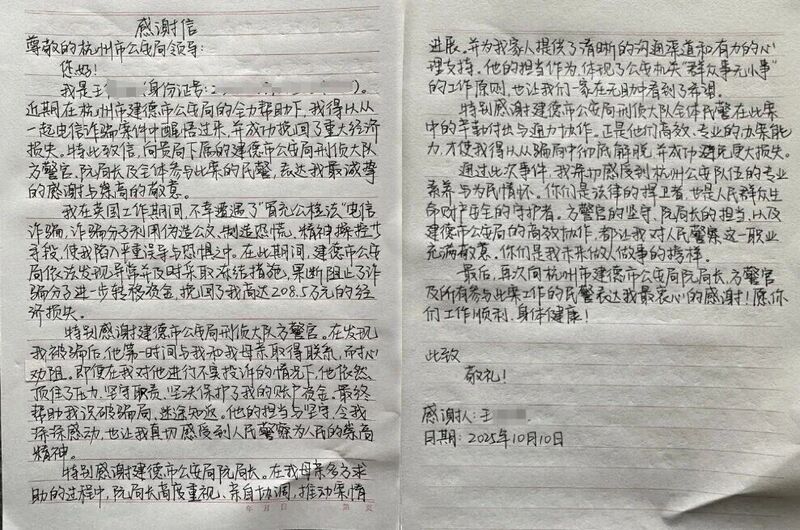 感谢信
尊敬的杭州市公安局领导：
您好！
我是王 （身份证号：2 ）。
近期在杭州市建德市公安局的全力帮助下，我得以从
一起电信诈骗案件中醒悟过来，并成功挽回了重大经济
损失。特此致信，向贵局下属的建德市公安局刑侦大队
方警官，阮局长及全体参与此案的民警，表达我最诚挚
的感谢与崇高的敬意。
我在英国工作期间，不幸遭遇了“冒充公检法”电信
诈骗，诈骗分子利用伪造公文、制造恐慌，精神操控等
手段，使我陷入严重误导与恐惧之中。在此期间，建德市公安
局依法发现异常并及时采取冻结措施，果断阻止了诈
骗分子进一步转移资金，挽回了我高达208.5万元的经
济损失。
特别感谢建德市公安局刑侦大队方警官。在发现
我被骗后，他第一时间与我和我母亲取得联系，耐心
劝阻。即便在我对他进行不实投诉的情况下，他依然
顶住了压力，坚守职责，坚决保护了我的账户资金。最终
帮助我识破骗局，迷途知返。他的担当与坚守，令我
深深感动，也让我真切感受到人民警察为人民的崇高
精神。
特别感谢建德市公安局阮局长。在我母亲多方求
助的过程中，阮局长高度重视、亲自协调，推动案情
年 月 日 第 页
进展。并为我家人提供了清晰的沟通渠道和有力的心
理支持。他的担当作为，体现了公安机关“群众事无小事”
的工作原则，也让我们一家在无助中看到了希望。
特别感谢建德市公安局刑侦大队全体民警在此案
中的辛勤付出与通力协作。正是他们高效、专业的办案能
力，才使我得以从骗局中彻底解脱，并成功避免更大损失。
通过此次事件，我亲切感受到杭州公安队伍的专业
素养与为民情怀。你们是法律的捍卫者，也是人民群众生
命财产安全的守护者。方警官的坚守、阮局长的担当，以及
建德市公安局的高效协作，都让我对人民警察这一职业
充满敬意。你们是我未来做人做事的榜样。
最后，再次向杭州市建德市公安局阮局长，方警官
及所有参与此案工作的民警表达我最衷心的感谢！愿你
们工作顺利，身体健康！
此致
敬礼！
感谢人：王
日期：2025年10月10日